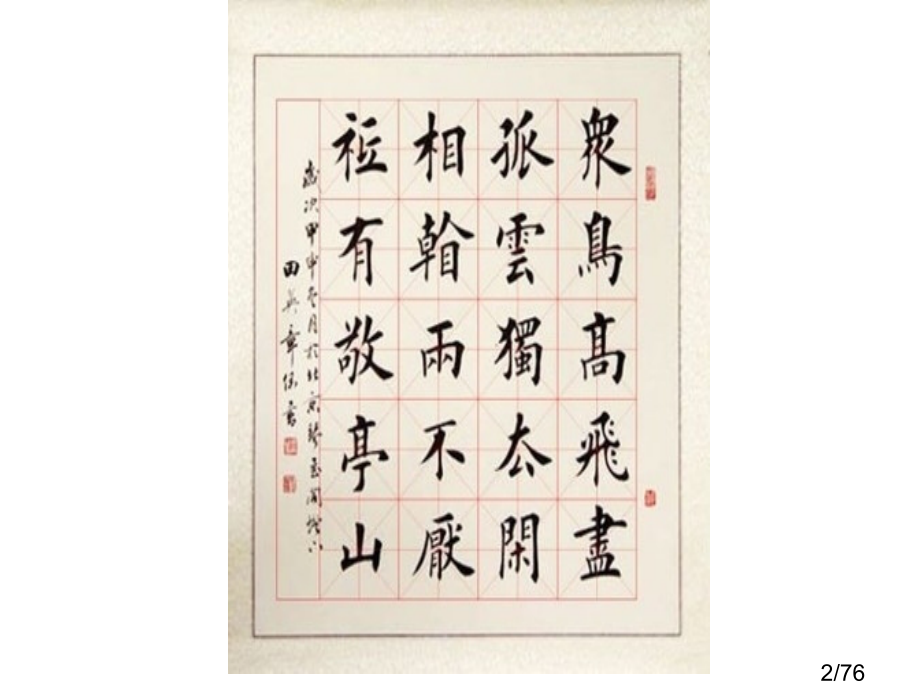 衆鳥髙飛盡
孤雲獨厺閑
相看兩不厭
祗有敬亭山
歲次甲申冬月於北京墨閣燈下
田英章書
2/76